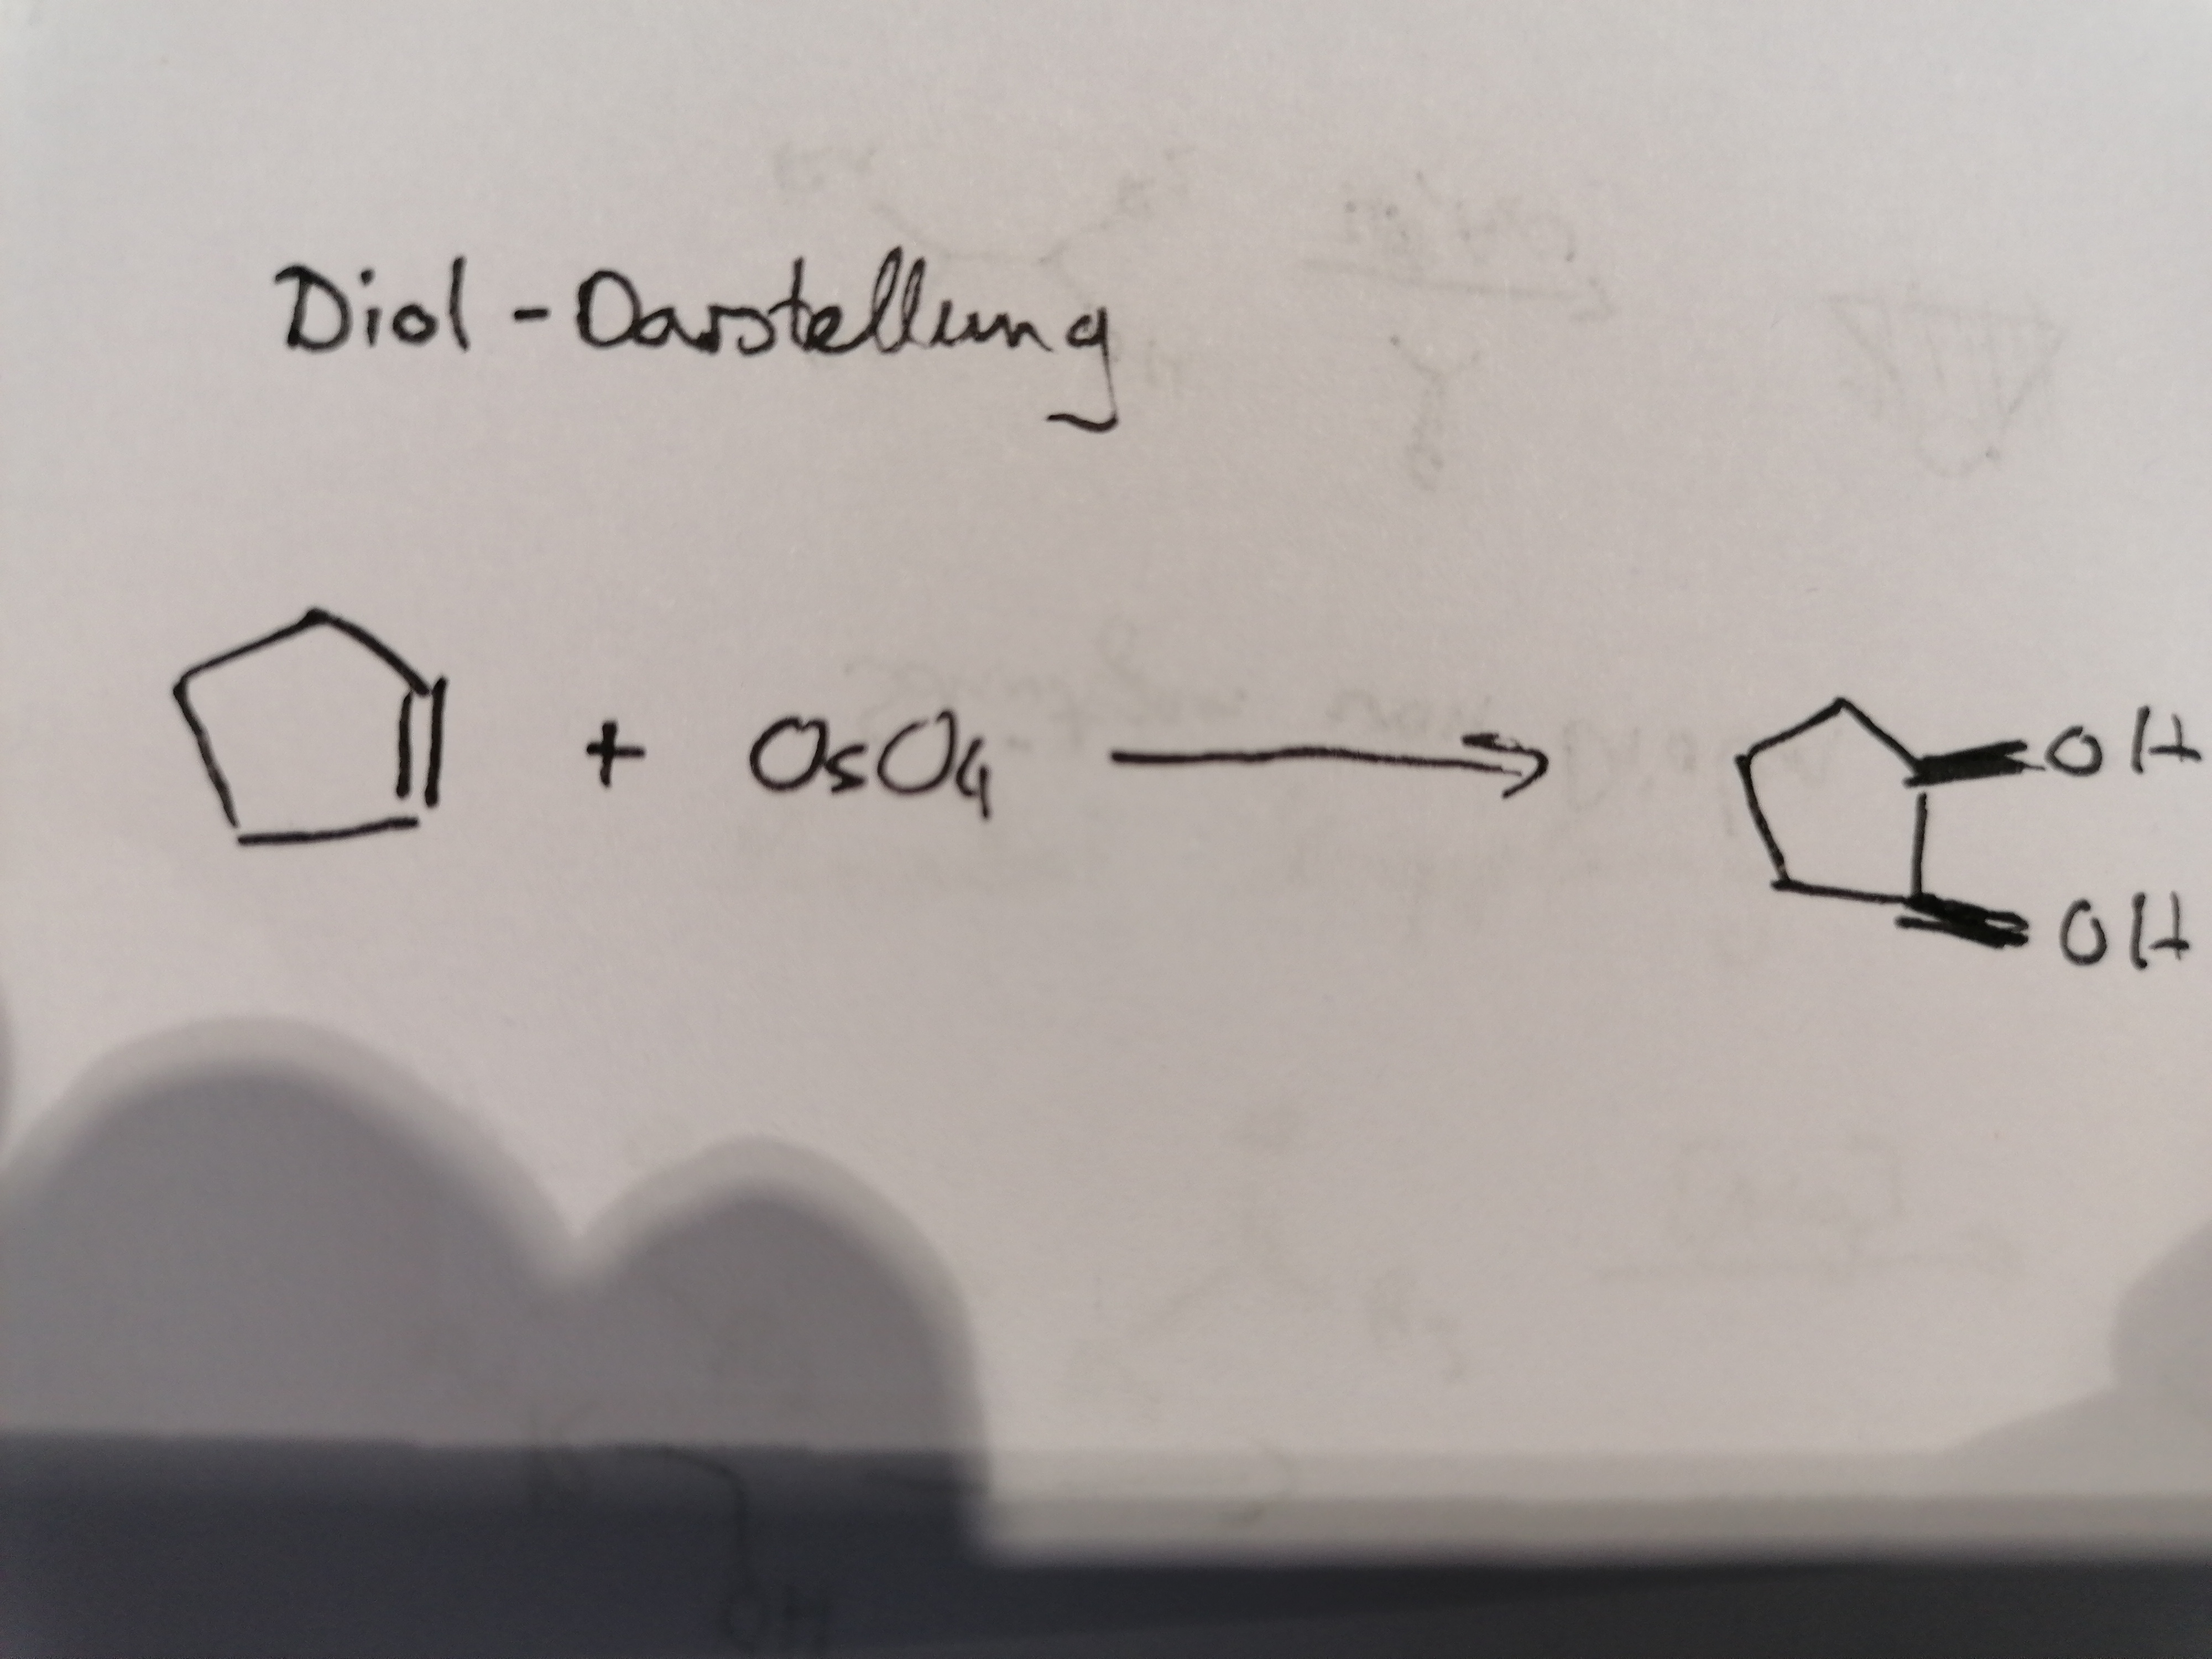 Diol - Darstellung
+ OsO4 → OH
OH